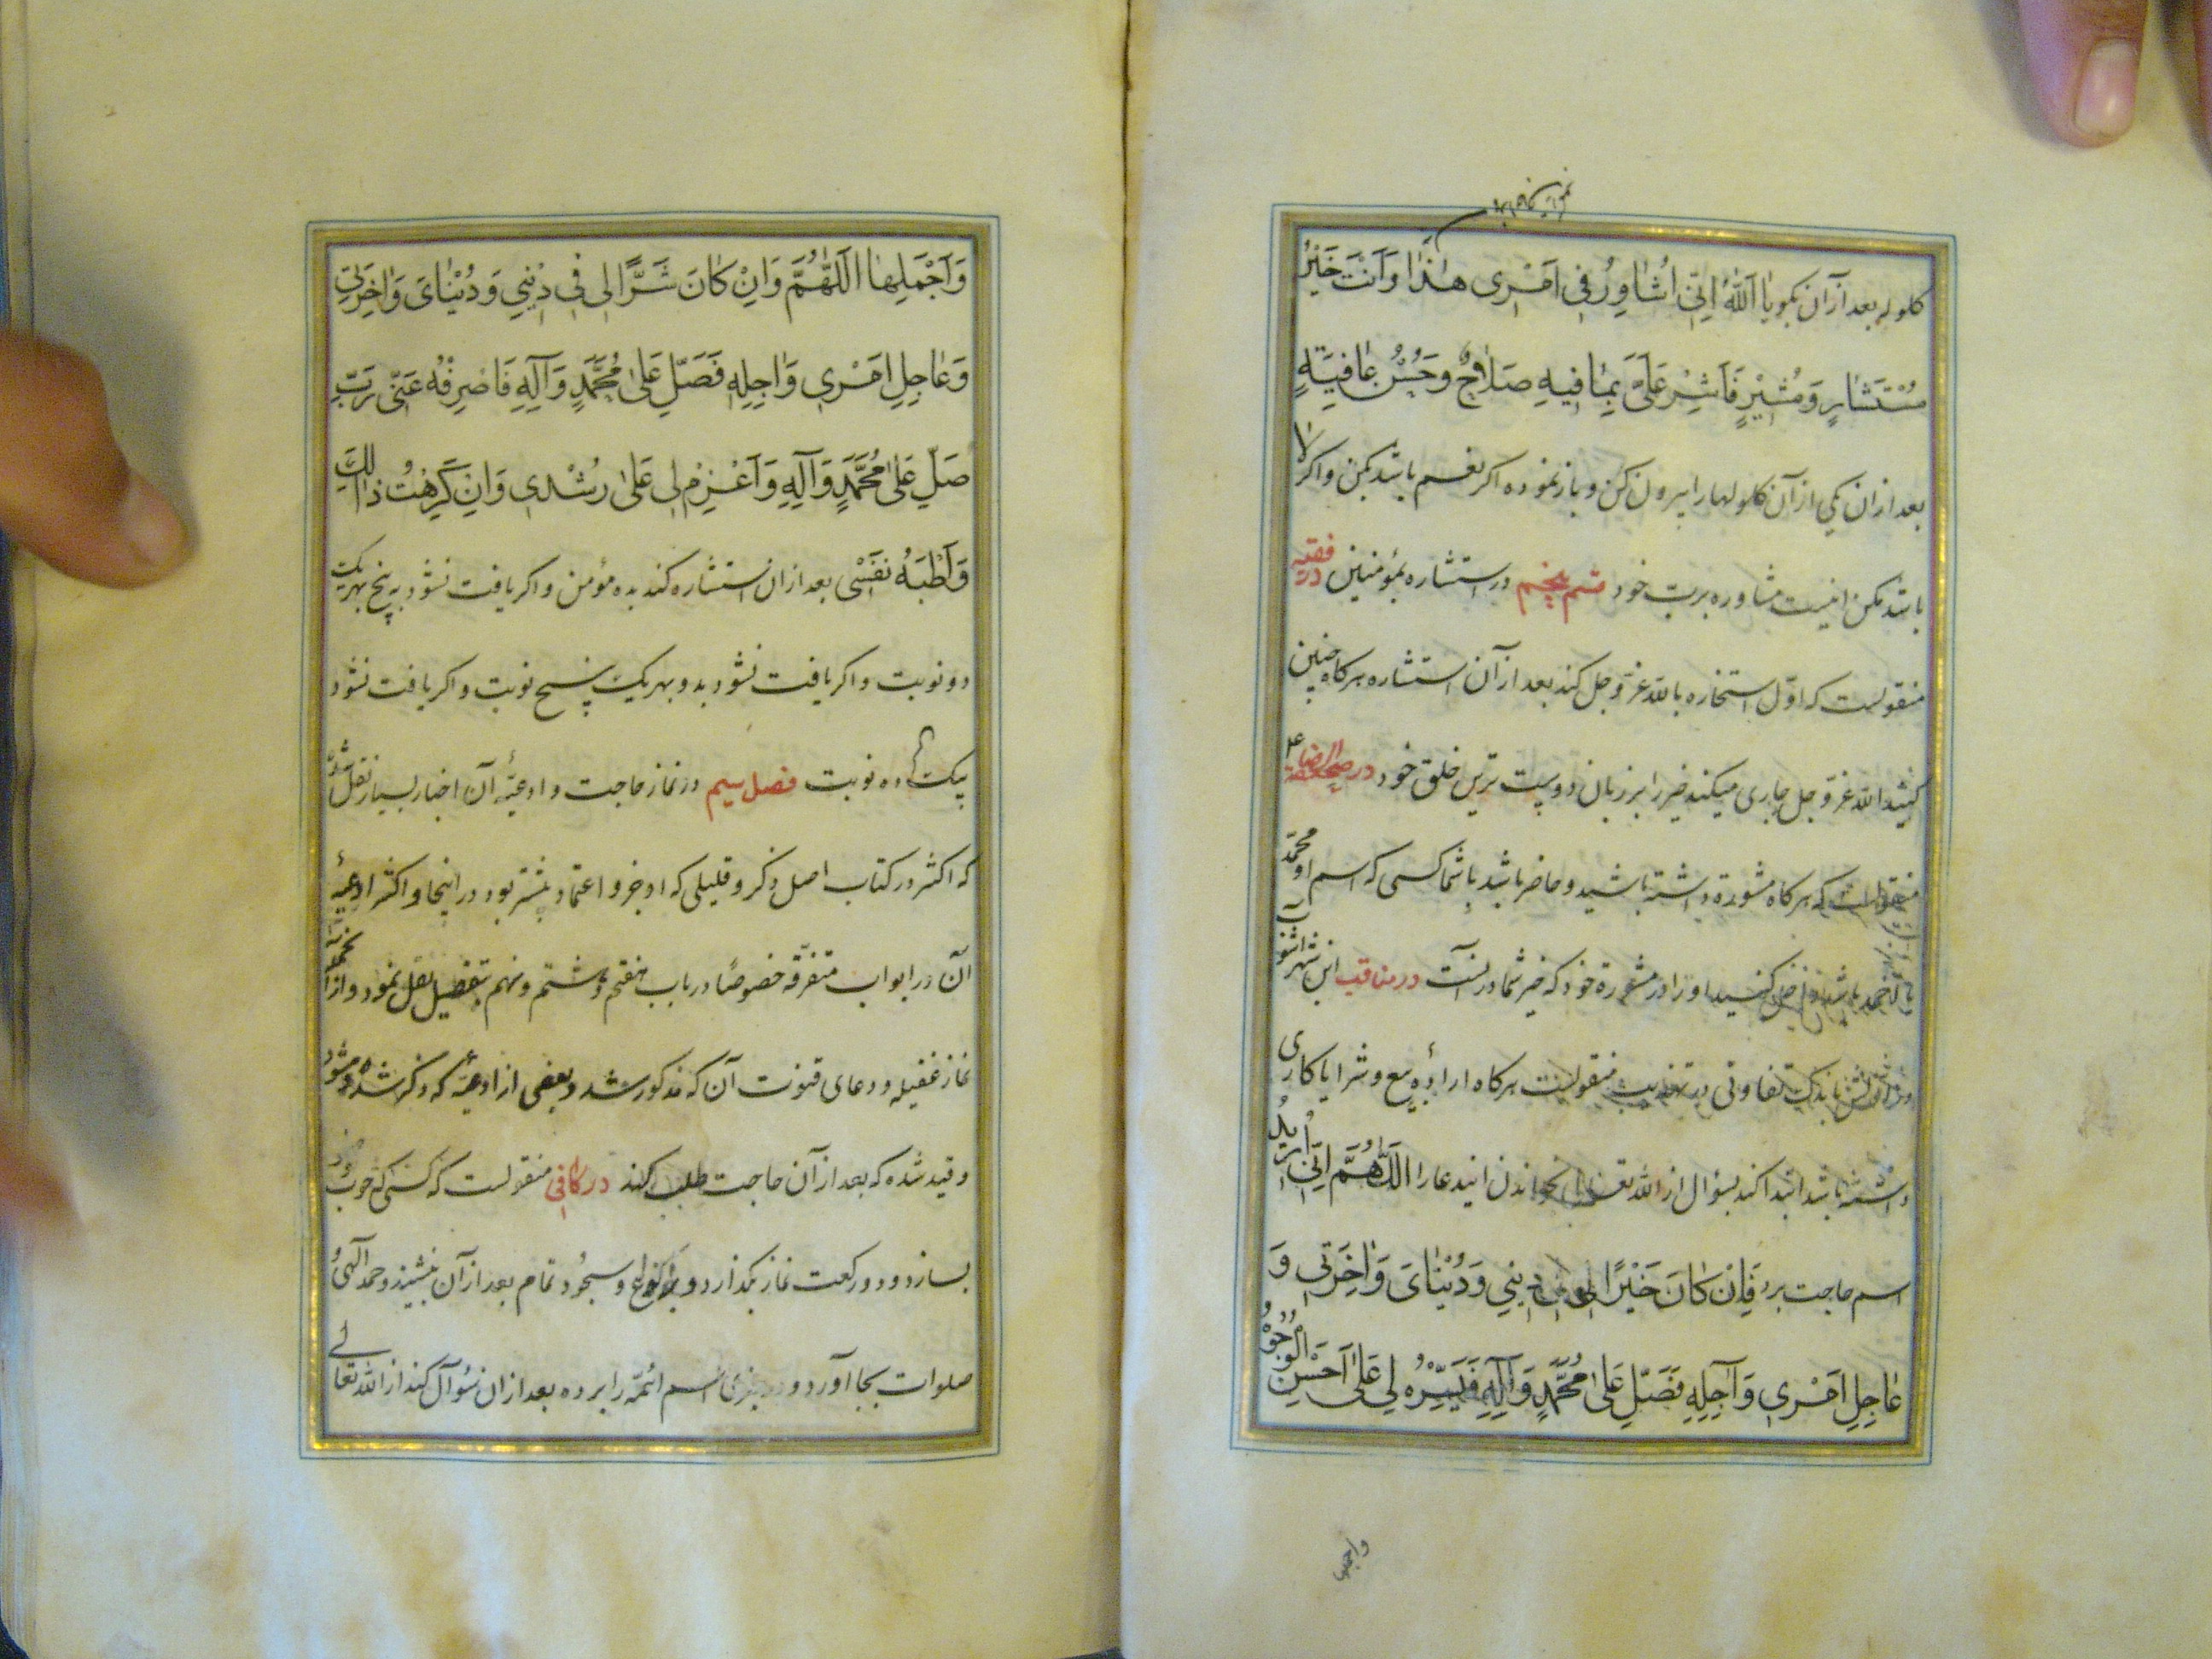 کلوله بعد ازآن بکو یا اَللّٰهُ اِنّی اُشاوِرُ فی اَمْری هٰذا وَاَنْتَ خَیْرُ
مُسْتَشارٍ وَمُشیْرٍ فَاَشِرْ عَلَیَّ بِمٰا فیهِ صَلاحٌ وَحُسْنُ عٰافِیَةٍ
بعد ازان یکی ازآن کلولها را بیرون کن و باز نموده اکر نعم باشد بکن و اکر لا
باشد مکن اینست مشاوره بربّ خود قسم پنجم در استشاره بمؤمنین در فقیه
منقولست که اوّل استخاره باللّه عزّ و جل کند بعد ازآن استشاره هرکاه چنین
کنید اللّه عزّ و جل جاری میکند خیر را بر زبان دوست ترین خلق خود در صحیفة الرضا ع
منقولست که هرکاه مشورة داشته باشید و حاضر باشد با شما کسی که اسم او محمّد
یا احمد باشد داخل کنید او را در مشورة خود که خیر شما در آنست در مناقب ابن شهر آشوب
باندک تفاوتی در تهذیب منقولست هرکاه ارادۀ بیع و شرا یا کاری
داشته باشد ابتدا کند بسؤال از اللّه تعالی بخواندن ایندعا را اَللّٰهُمَّ اِنّی اُریدُ
اسم حاجت برد فَاِنْ کانَ خَیْرًا لی فی دینی وَدُنْیٰایَ وَاٰخِرَتی وَ
عٰاجِلِ اَمْری وَآجِلِهِ فَصَلِّ عَلیٰ مُحَمَّدٍ وَآلِهِ فَیَسِّرْهُ لی عَلیٰ اَحْسَنِ الْوُجُوهِ
واجملها
وَاَجْمَلِهٰا اَللّٰهُمَّ وَاِنْ کانَ شَرًّا لی فی دینی وَدُنْیٰایَ وَاٰخِرَتی
وَعٰاجِلِ اَمْری وَاٰجِلِهِ فَصَلِّ عَلیٰ مُحَمَّدٍ وَآلِهِ فَاصْرِفْهُ عَنّی رَبِّ
صَلِّ عَلیٰ مُحَمَّدٍ وَآلِهِ وَاَعْزِمْ لی عَلیٰ رُشْدی وَاِنْ کَرِهْتُ ذٰلِکَ
وَاَبَتْهُ نَفْسی بعد ازان استشاره کند بده مؤمن و اکر یافت نشود به پنج بهریک
دو نوبت و اکر یافت نشود بدو بهریک پنج نوبت و اکر یافت نشود
بیک کس ده نوبت فصل سیم در نماز حاجت و ادعیۀ آن اخبار بسیار نقل شد
که اکثر در کتاب اصل ذکر و قلیلی که اوخر و اعتماد بیشتر بود در اینجا و اکثر ادعیۀ
آن در ابواب متفرقه خصوصًا در باب هفتم و هشتم و نهم بتفصیل نقل نمود و از آنجمله
نماز غفیله و دعای قنوت آن که مذکور شد و بعضی از ادعیّه که ذکر شده و میشود
و قید شده که بعد ازآن حاجت طلب کند در کافی منقولست که کسی که خوب وضو
بسازد و دو رکعت نماز بکذارد و رکوع و سجود تمام بعد ازآن بنشیند و حمد آلهی و
صلوات بجا آورد و اسم ائمّه را برده بعد ازان سؤال کند از اللّه تعالی